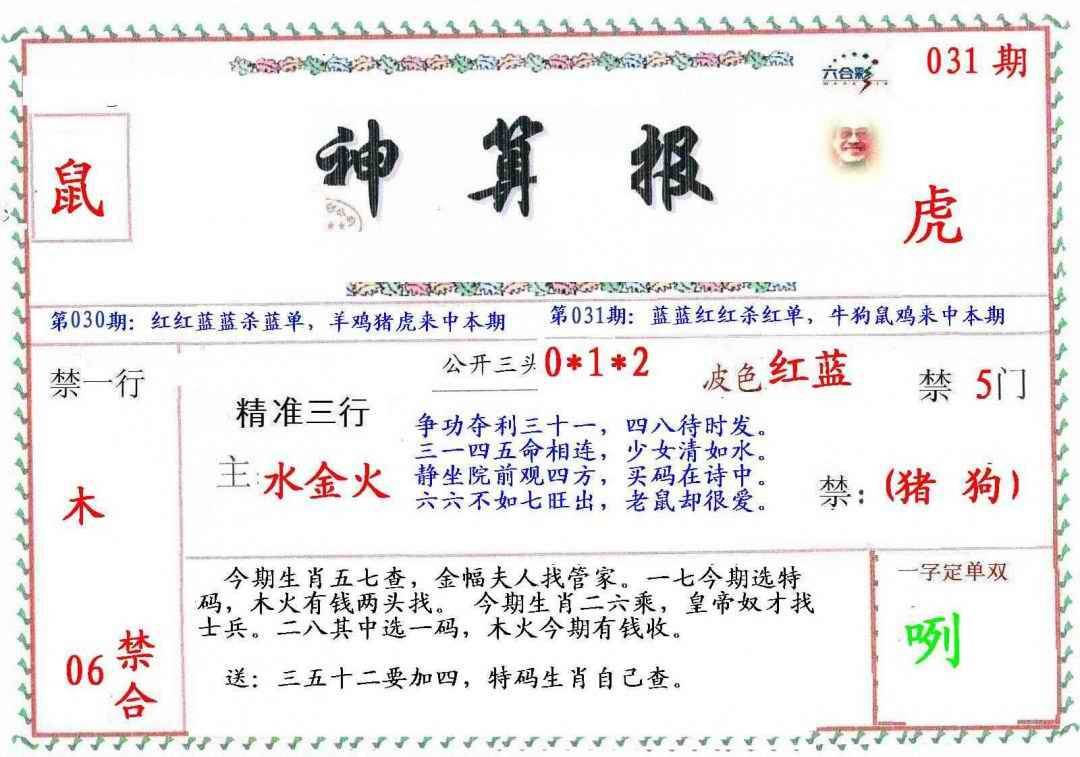 六合彩
031期
神算报
鼠
虎
第030期：红红蓝蓝杀蓝单，羊鸡猪虎来中本期
第031期：蓝蓝红红杀红单，牛狗鼠鸡来中本期
禁一行
公开三头0*1*2
波色红蓝
禁5门
精准三行
争功夺利三十一，四八待时发。
三一四五命相连，少女清如水。
静坐院前观四方，买码在诗中。
六六不如七旺出，老鼠却很爱。
主：水金火
禁：（猪 狗）
木
今期生肖五七查，金幅夫人找管家。一七今期选特
码，木火有钱两头找。 今期生肖二六乘，皇帝奴才找
士兵。二八其中选一码，木火今期有钱收。
送：三五十二要加四，特码生肖自己查。
一字定单双
咧
06禁合